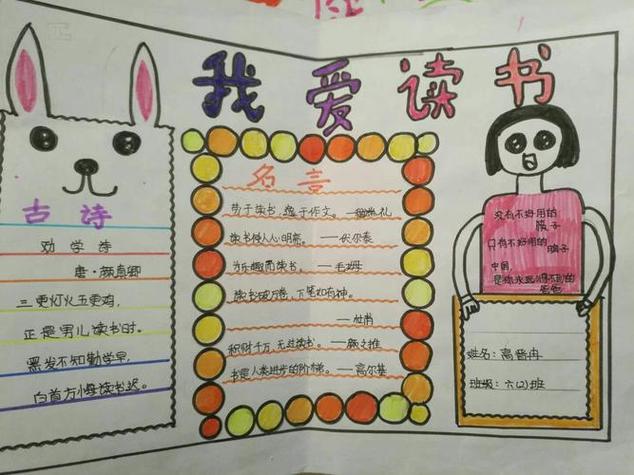 我爱读书
古诗
劝学诗
唐·颜真卿
三更灯火五更鸡,
正是男儿读书时。
黑发不知勤学早,
白首方悔读书迟。
名言
劳于读书,逸于作文。
读书使人心明亮。——伏尔泰
为乐趣而读书。——毛姆
读书破万卷,下笔如有神。
——杜甫
积财千万,无过读书。——颜之推
书是人类进步的阶梯。——高尔基
没有不好用的
筷子
只有不好用的
脑子
中国,
姓名:高晋冉
班级:六(2)班